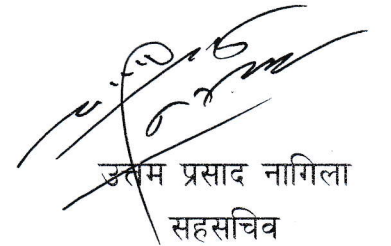 उत्तम प्रसाद नागिला
सहसचिव